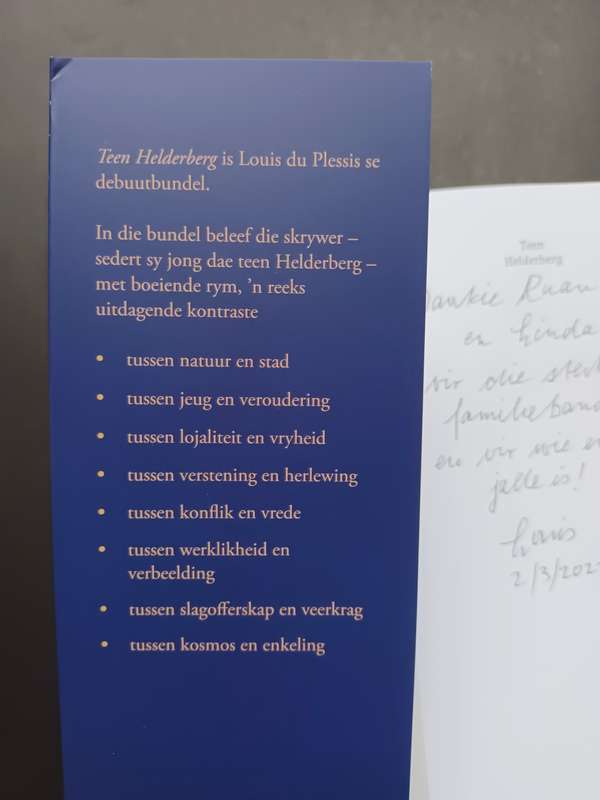 Teen Helderberg is Louis du Plessis se
debuutbundel.
In die bundel beleef die skrywer –
sedert sy jong dae teen Helderberg –
met boeiende rym, ’n reeks
uitdagende kontraste
• tussen natuur en stad
• tussen jeug en veroudering
• tussen lojaliteit en vryheid
• tussen verstening en herlewing
• tussen konflik en vrede
• tussen werklikheid en
verbeelding
• tussen slagofferskap en veerkrag
• tussen kosmos en enkeling
Teen
Helderberg
Dankie Ruan
en Linda
vir die
familieband
en vir wie en
julle is!
Louis
2/3/202